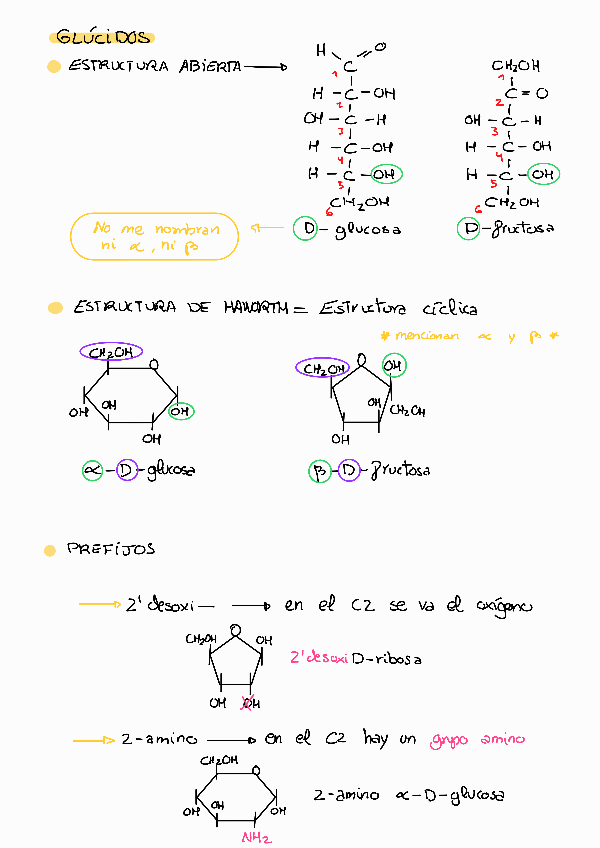 GLÚCIDOS
ESTRUCTURA ABIERTA
H O
C
1
H - C - OH
2
OH - C - H
3
H - C - OH
4
H - C - OH
5
CH2OH
6
D - glucosa
CH2OH
1
C = O
2
OH - C - H
3
H - C - OH
4
H - C - OH
5
CH2OH
6
D - fructosa
No me nombran
ni α, ni β
ESTRUCTURA DE HAWORTH = Estructura cíclica
* mencionan α y β *
CH2OH
O
OH OH OH
OH
α - D - glucosa
CH2OH O OH
OH CH2OH
OH
β - D - fructosa
PREFIJOS
2' desoxi — en el C2 se va el oxígeno
CH2OH O OH
OH OH
2' desoxi D-ribosa
2-amino en el C2 hay un grupo amino
CH2OH
O
OH OH OH
NH2
2-amino α-D-glucosa